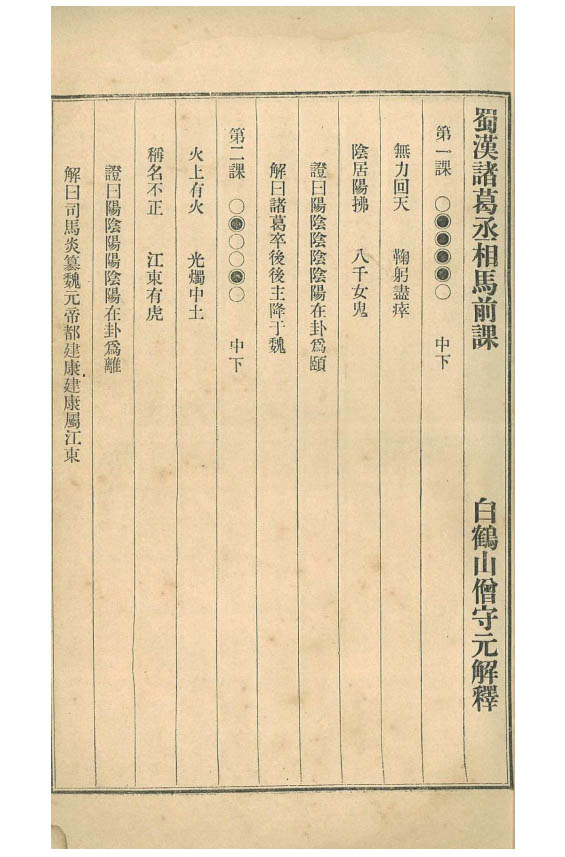 蜀漢諸葛丞相馬前課 白鶴山僧守元解釋
第一課 ○●●●●○ 中下
無力回天 鞠躬盡瘁
陰居陽拂 八千女鬼
證曰陽陰陰陰陰陽在卦爲頤
解曰諸葛卒後後主降于魏
第二課 ○●○○●○ 中下
火上有火 光燭中土
稱名不正 江東有虎
證曰陽陰陽陽陰陽在卦爲離
解曰司馬炎纂魏元帝都建康建康屬江東